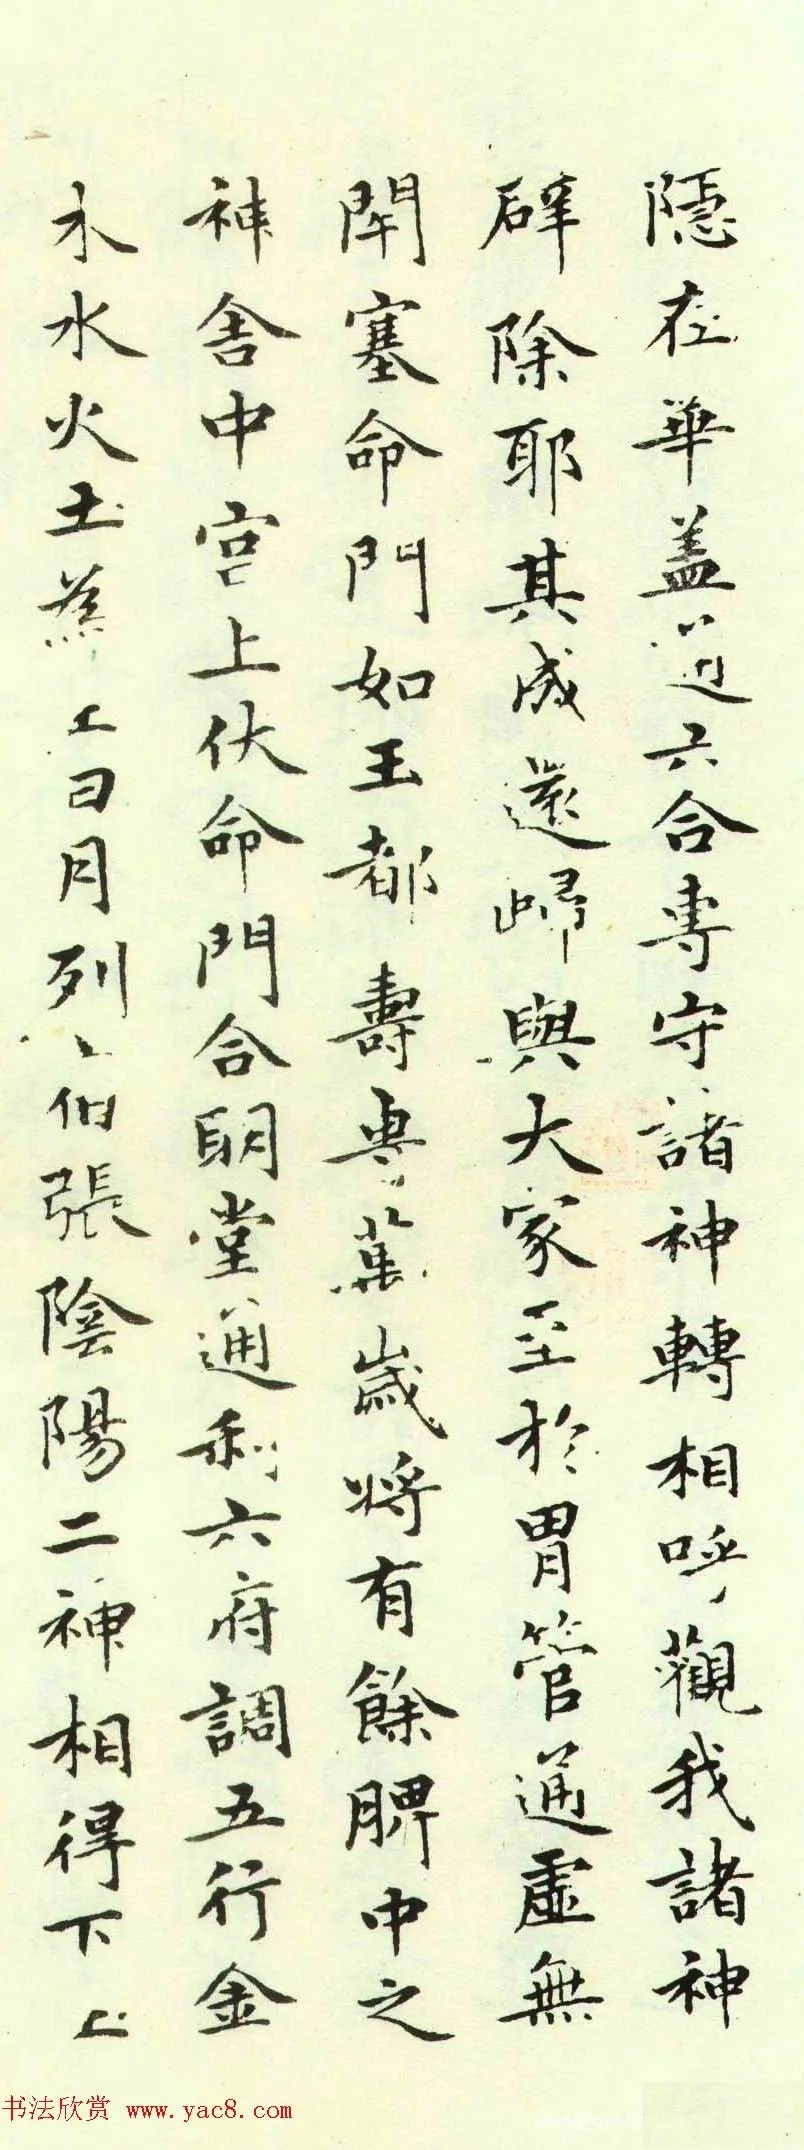 隱在華盖通六合專守諸神轉相呼觀我諸神
辟除耶其成還歸與大家至於胃管通虛無
閉塞命門如玉都壽專萬歲將有餘脾中之
神舍中宮上伏命門合明堂通利六府調五行金
木水火土為王日月列宿張陰陽二神相得下玉
书法欣赏 www.yac8.com